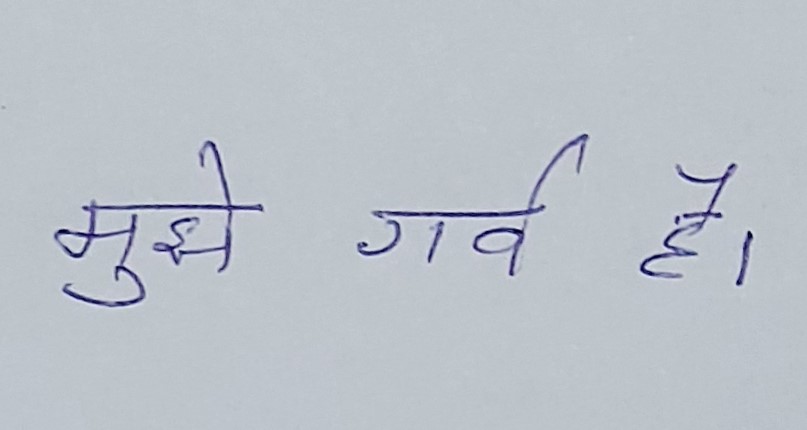 मुझे गर्व है।